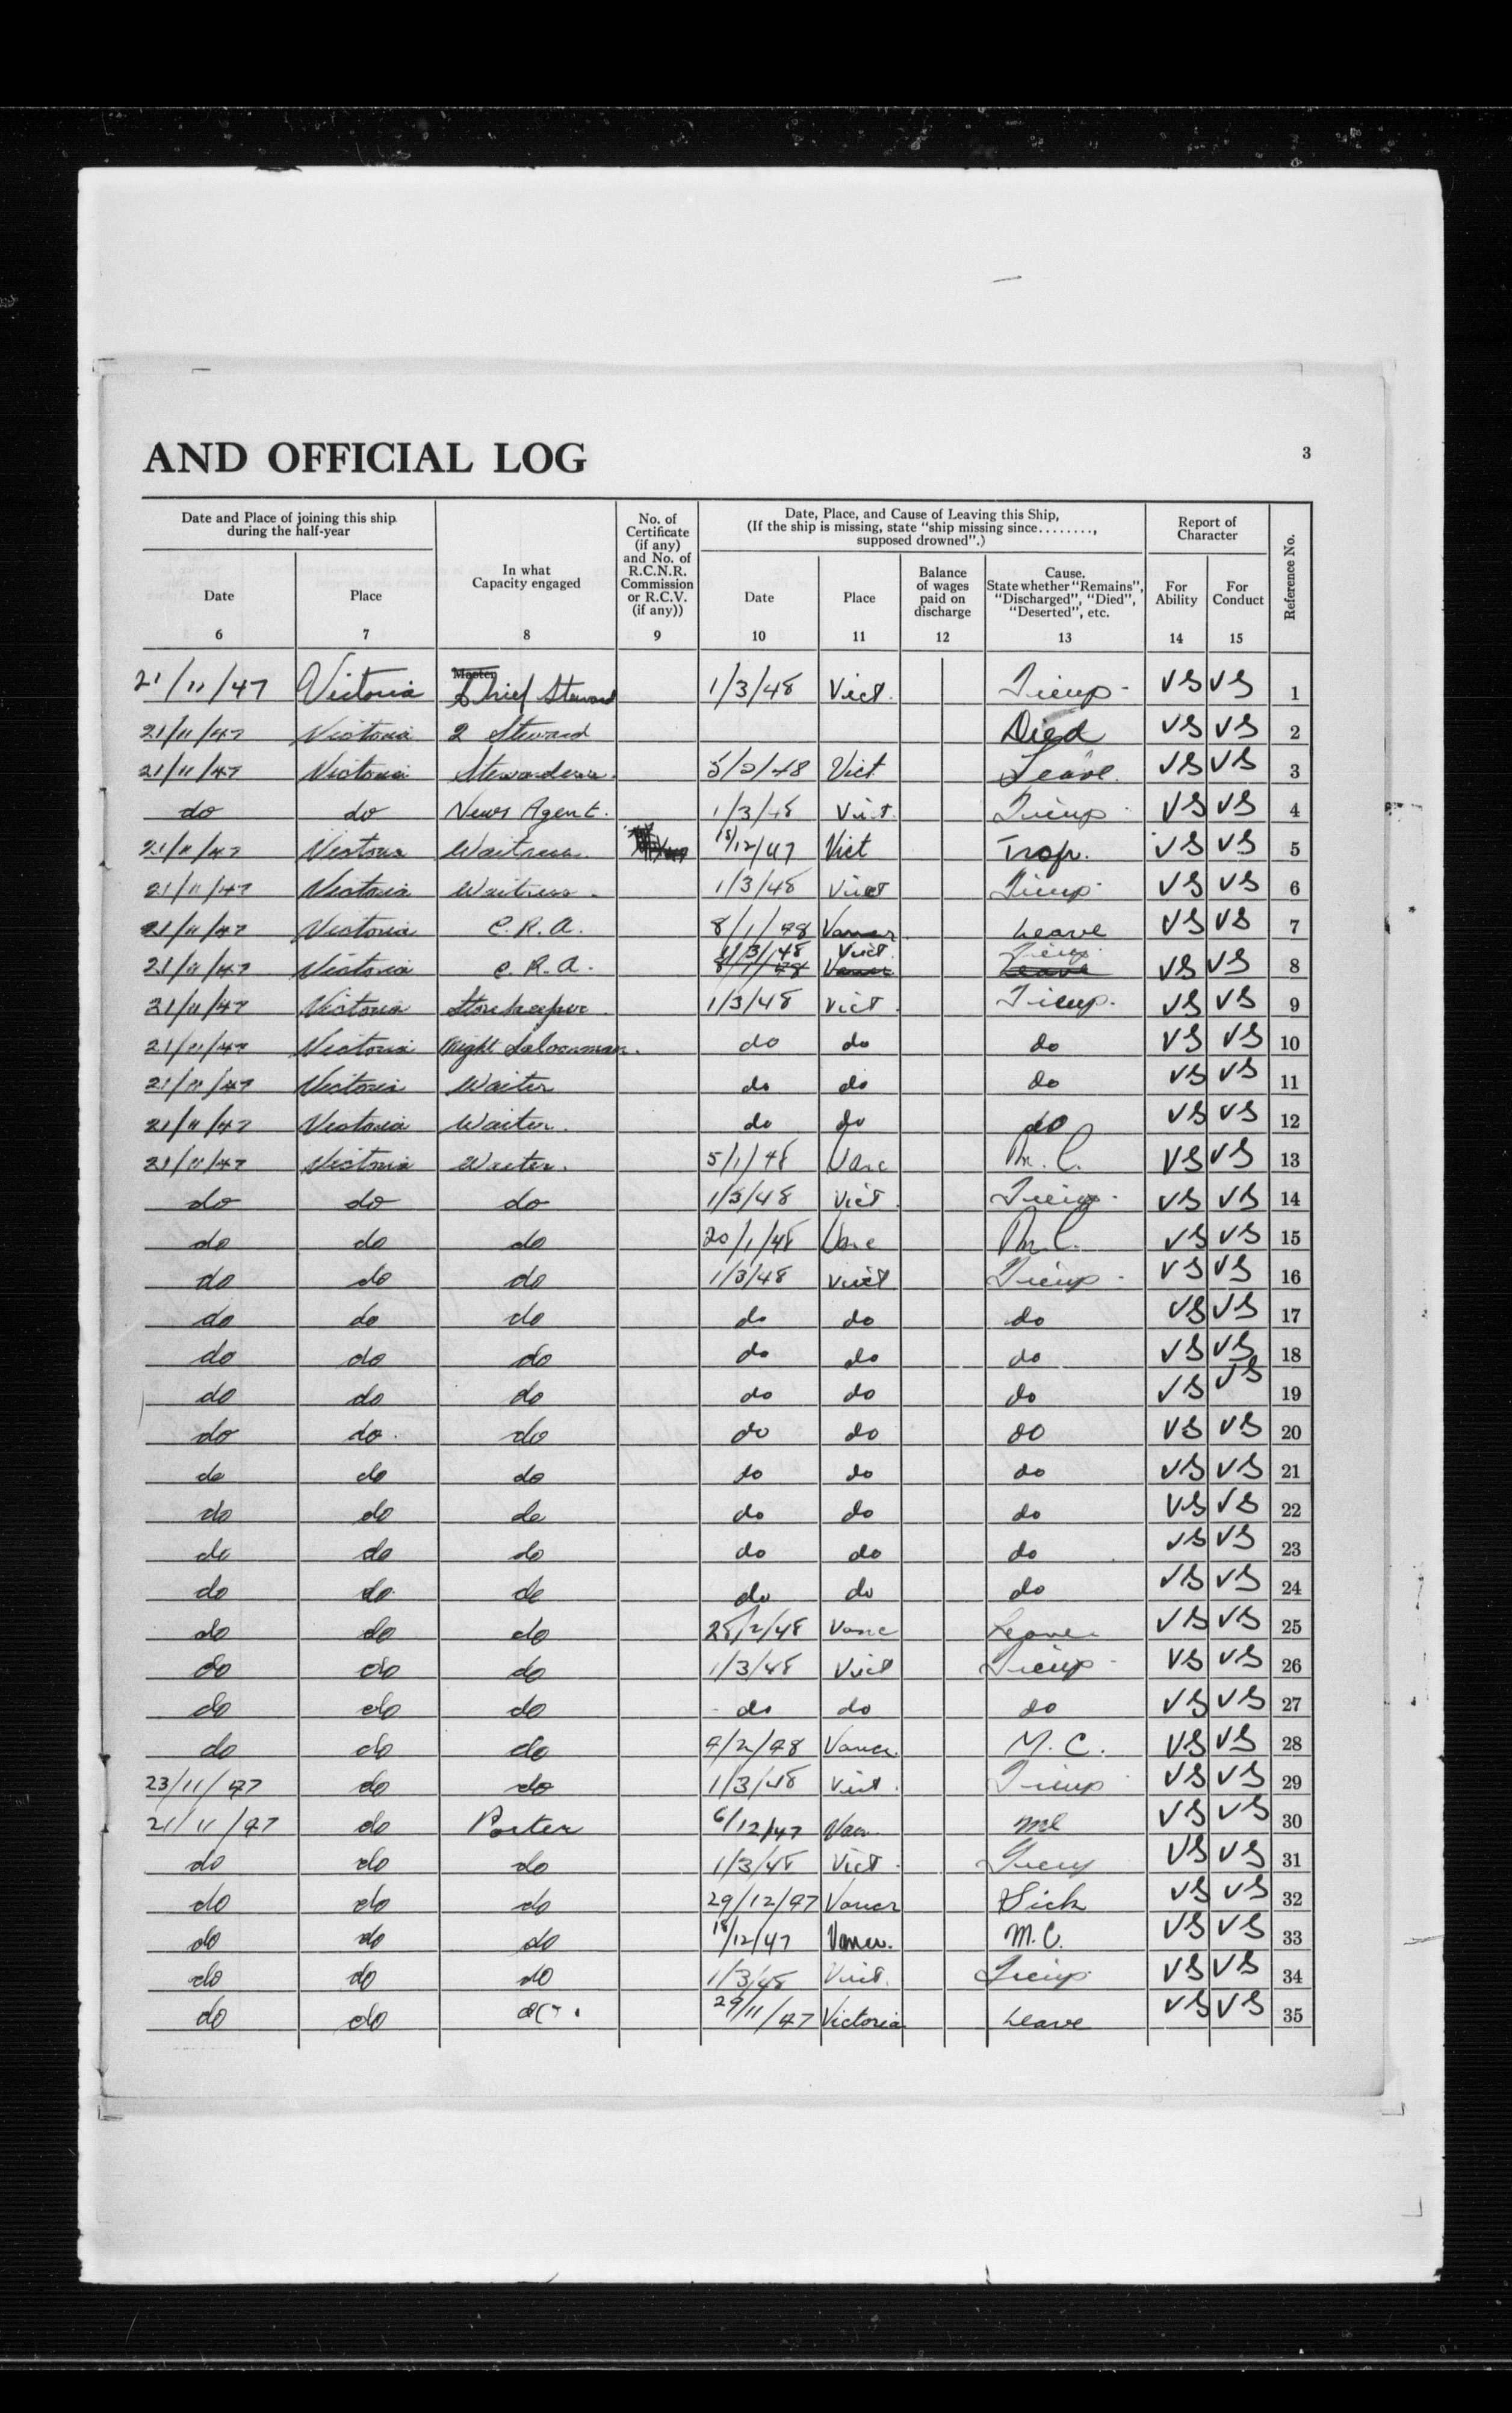 AND OFFICIAL LOG 3
Date and Place of joining this ship during the half-year
In what Capacity engaged
No. of Certificate (if any) and No. of R.C.N.R. Commission or R.C.V. (if any))
Date, Place, and Cause of Leaving this Ship, (If the ship is missing, state "ship missing since........, supposed drowned".)
Report of Character
Reference No.
Date Place Date Place Balance of wages paid on discharge Cause. State whether "Remains", "Discharged", "Died", "Deserted", etc. For Ability For Conduct
6 7 8 9 10 11 12 13 14 15
Master
21/11/47 Victoria Chief Steward 1/3/48 Vict. Tieup VS VS 1
21/11/47 Victoria 2 Steward Died VS VS 2
21/11/47 Victoria Stewardess. 5/2/48 Vict Leave. VS VS 3
do do News Agent. 1/3/48 Vict. Tieup VS VS 4
21/11/47 Victoria Waitress 18/12/47 Vict VS VS 5
21/11/47 Victoria Waitress. 1/3/48 Vict Tieup VS VS 6
21/11/47 Victoria C.R.A. 8/1/48 Vancr. Leave VS VS 7
1/3/48 Vict. Tieup
21/11/47 Victoria C.R.A. 8/1/48 Vancr Leave VS VS 8
21/11/47 Victoria Storekeeper. 1/3/48 Vict. Tieup. VS VS 9
21/11/47 Victoria Night Saloonman. do do do VS VS 10
21/11/47 Victoria Waiter do do do VS VS 11
21/11/47 Victoria Waiter. do do do VS VS 12
21/11/47 Victoria Waiter. 5/1/48 Vanc M.C. VS VS 13
do do do 1/3/48 Vict. Tieup VS VS 14
do do do 20/1/48 Vanc M.C. VS VS 15
do do do 1/3/48 Vict Tieup VS VS 16
do do do do do do VS VS 17
do do do do do do VS VS 18
do do do do do do VS VS 19
do do. do do do do VS VS 20
do do do do do do VS VS 21
do do do do do do VS VS 22
do do do do do do VS VS 23
do do do do do do VS VS 24
do do do 28/2/48 Vanc Leave VS VS 25
do do do 1/3/48 Vict Tieup VS VS 26
do do do do do do VS VS 27
do do do 9/2/48 Vancr. M.C. VS VS 28
23/11/47 do do 1/3/48 Vict. Tieup VS VS 29
21/11/47 do Porter 6/12/47 Van. mc VS VS 30
do do do 1/3/48 Vict. Tieup VS VS 31
do do do 29/12/47 Vancr Sick VS VS 32
do do do 18/12/47 Vancr. M.C. VS VS 33
do do do 1/3/48 Vict. Tieup VS VS 34
do do 29/11/47 Victoria Leave VS VS 35